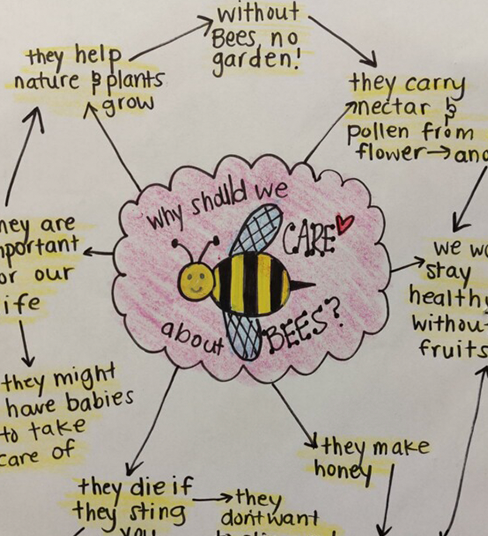 without
Bees no
garden!
they help
nature & plants
grow
they carry
nectar &
pollen from
flower→
why should we
CARE
about
BEES?
are
our
we
stay
healthy
fruits
they might
have babies
to take
care of
they make
honey
they die if
they sting
you
they
don't want